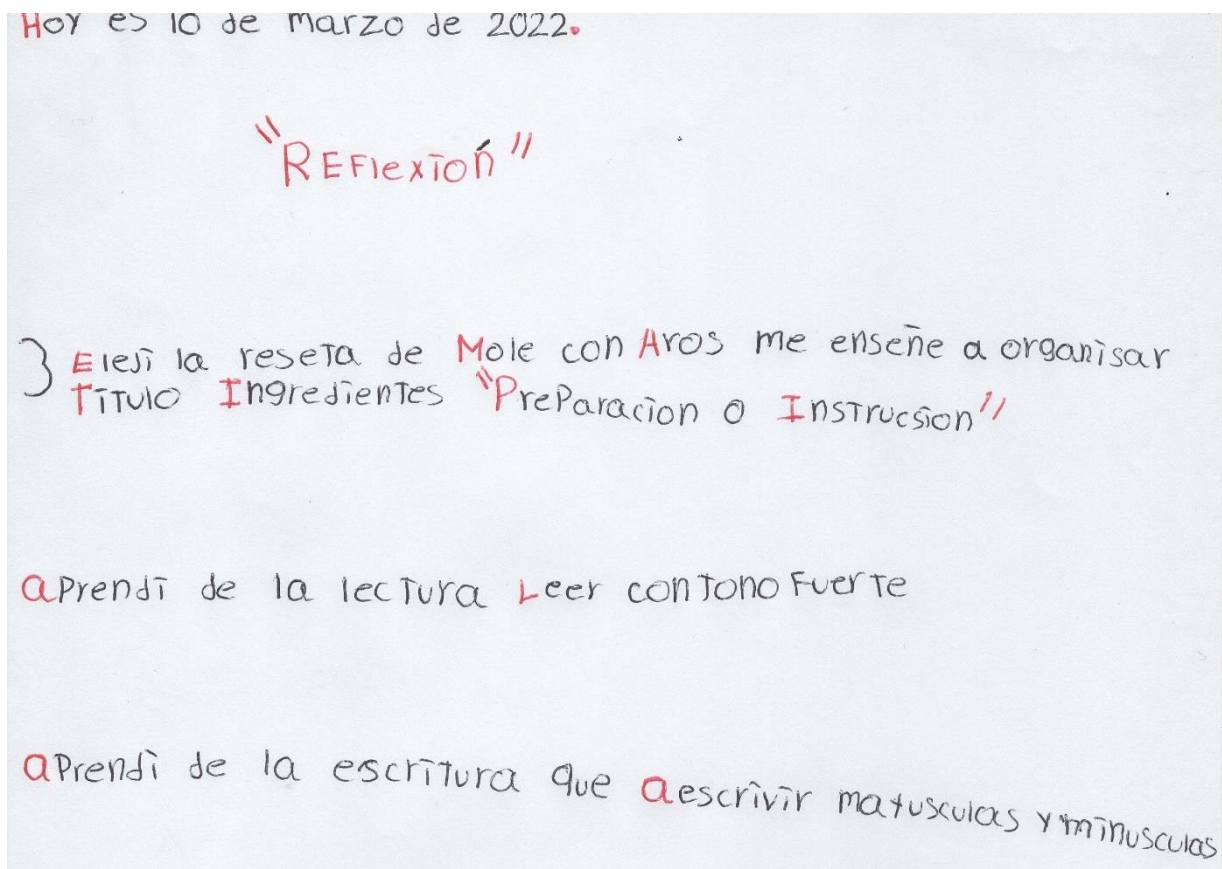 Hoy es 10 de Marzo de 2022.
"REFlexión"
3 Eleji la reseta de Mole con Aros me enseñe a organisar
Titulo Ingredientes "Preparacion o Instrucsion"
aprendi de la lectura Leer con tono Fuerte
aprendi de la escritura que a escrivir matusculas y minusculas